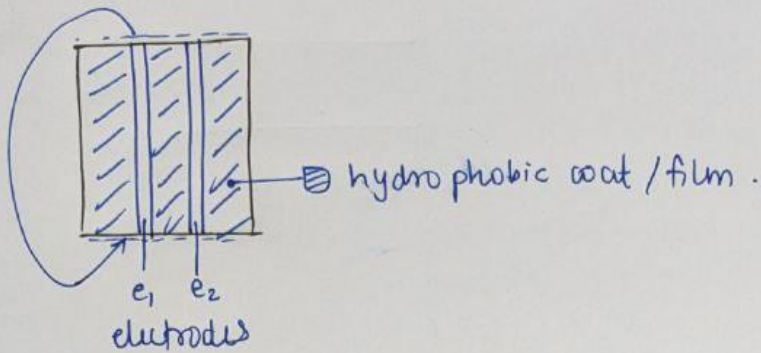 hydrophobic coat / film .
e₁ e₂
electrodes